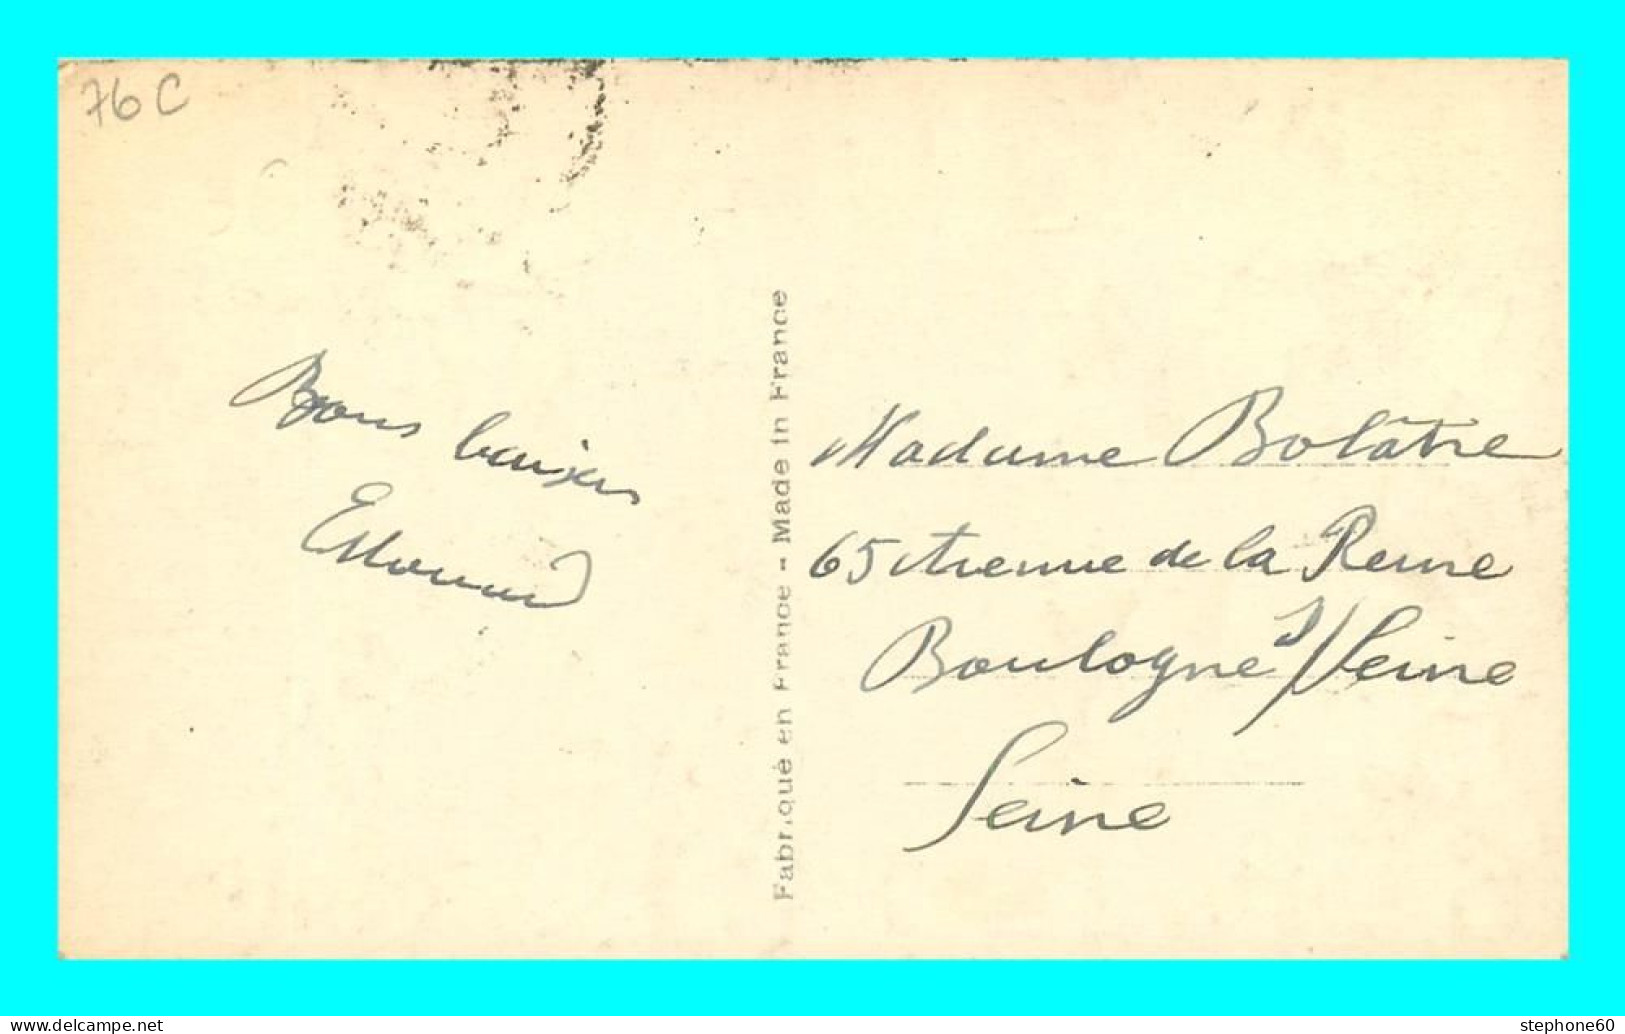 76 C
Bons baisers
Edouard
Fabriqué en France - Made in France
Madame Bolâtre
65 Avenue de la Reine
Boulogne s/Seine
Seine
www.delcampe.net
stephone60